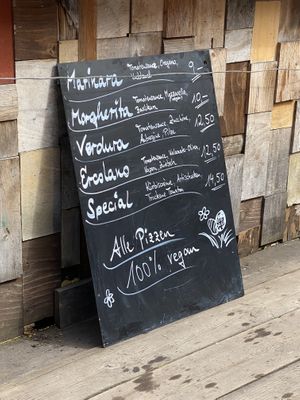 Marinara Tomatensauce, Oregano, 9,-
Knoblauch
Margherita Tomatensauce, Mozzarella, 10,-
Basilikum
Verdura Tomatensauce, Zucchini, 12,50
Aubergine, Pilze
Ercolano Tomatensauce, Oliven, 12,50
Kapern, Zwiebeln
Special Kürbiscreme, Artischocken 14,50
Trockene Tomaten
Alle Pizzen
100% vegan